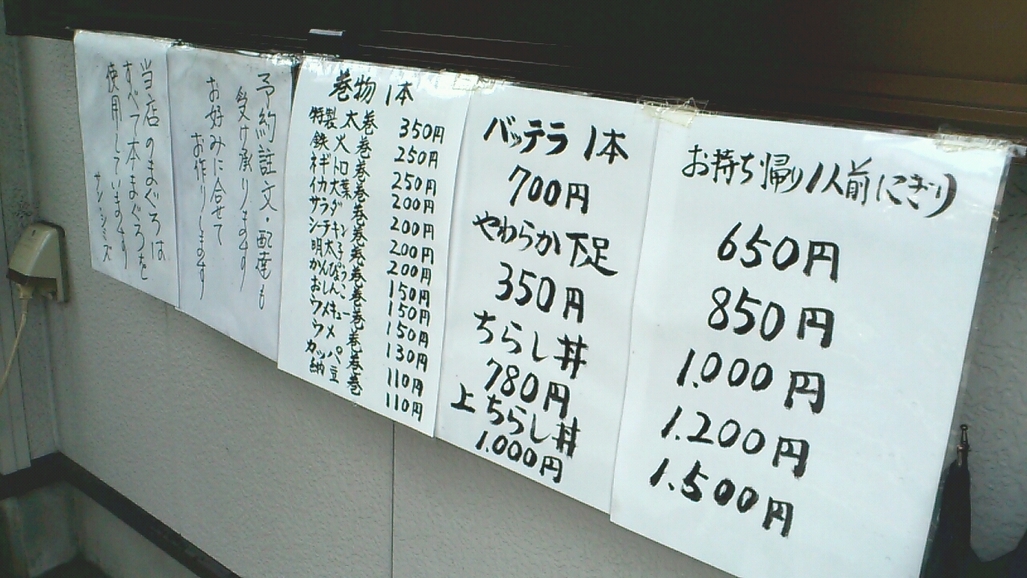 当店のまぐろは
すべて本まぐろを
使用しています
予約註文・配達も
受け承ります
お好みに合せて
お作りします
巻物1本
特製太巻 350円
鉄火巻 250円
ネギトロ巻 250円
イカ大葉巻 200円
サラダ巻 200円
シーチキン巻 200円
明太子巻 200円
かんぴょう巻 150円
おしんこ巻 150円
ウメキュー巻 150円
ウメ巻 130円
カッパ巻 110円
納豆巻 110円
バッテラ1本
700円
やわらか下足
350円
ちらし丼
780円
上ちらし丼
1.000円
お持ち帰り1人前にぎり
650円
850円
1.000円
1.200円
1.500円